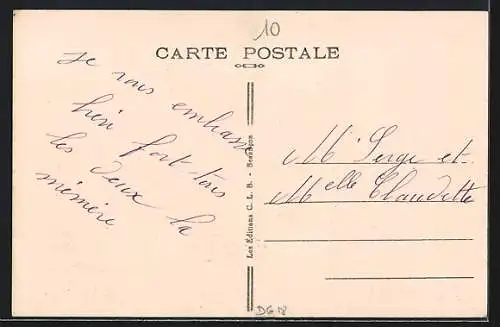 10
CARTE POSTALE
Je vous embrasse
bien fort tous
les deux la
mémère
Les Editions C. L. B. - Besançon
Mr Serge et
Melle Claudette
D618